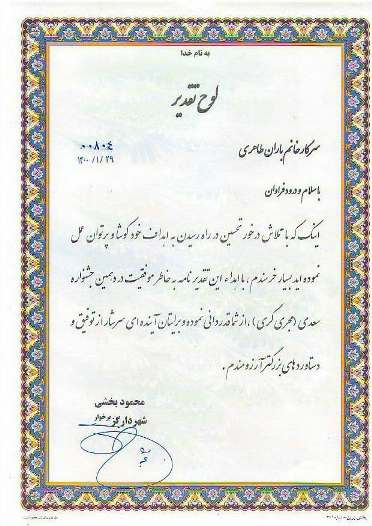 به نام خدا
لوح تقدیر
۰۰۸۰۴
سرکار خانم باران طاهری
۱۴۰۰/۱/۲۹
با سلام و درود فراوان
اینک که با تلاش درخور تحسین در راه رسیدن به اهداف خود کوشا و پرتوان عمل
نموده اید بسیار خرسندم، با اهداء این تقدیرنامه به خاطر موفقیت در دهمین جشنواره
سعدی (مجری گری)، از شما قدردانی نموده و برایتان آینده ای سرشار از توفیق و
دستاوردهای بزرگتر آرزومندم.
محمود بخشی
شهردار گز برخوار